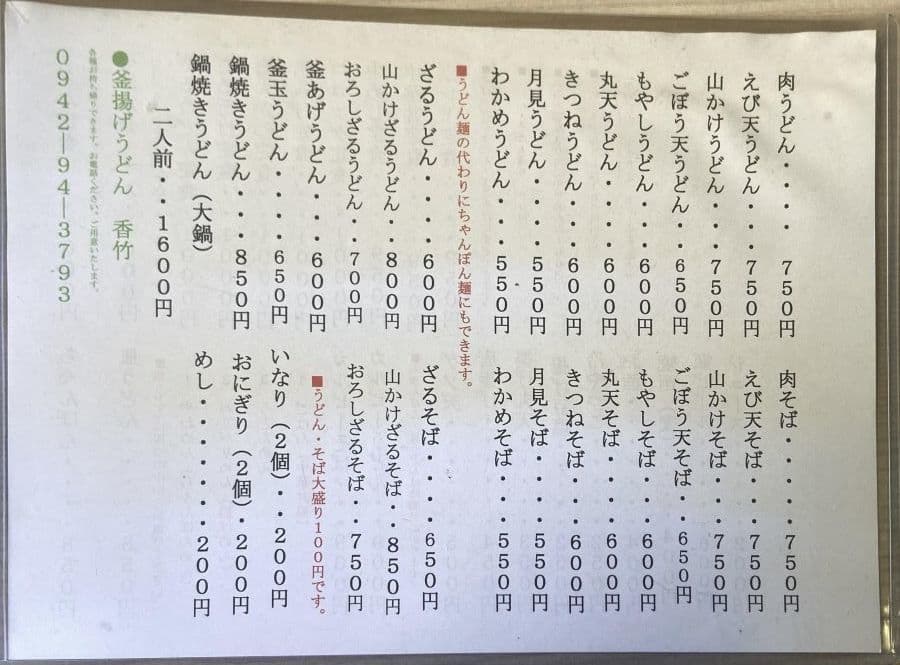 肉うどん・・・ 750円
えび天うどん・・・750円
山かけうどん・・・750円
ごぼう天うどん・・650円
もやしうどん・・・600円
丸天うどん・・・・600円
きつねうどん・・・600円
月見うどん・・・・550円
わかめうどん・・・550円
■うどん麺の代わりにちゃんぽん麺にもできます。
ざるうどん・・・・600円
山かけざるうどん・・800円
おろしざるうどん・・700円
釜あげうどん・・・600円
釜玉うどん・・・・650円
鍋焼きうどん・・・850円
鍋焼きうどん（大鍋）
二人前・・1600円
肉そば・・・・・750円
えび天そば・・・750円
山かけそば・・・750円
ごぼう天そば・・650円
もやしそば・・・600円
丸天そば・・・・600円
きつねそば・・・600円
月見そば・・・・550円
わかめそば・・・550円
ざるそば・・・・650円
山かけざるそば・・850円
おろしざるそば・・750円
■うどん・そば大盛り100円です。
いなり（2個）・・200円
おにぎり（2個）・・200円
めし・・・・・・200円
●釜揚げうどん 香竹
各種お持ち帰りできます。お電話ください。ご用意いたします。
0942―94―3793